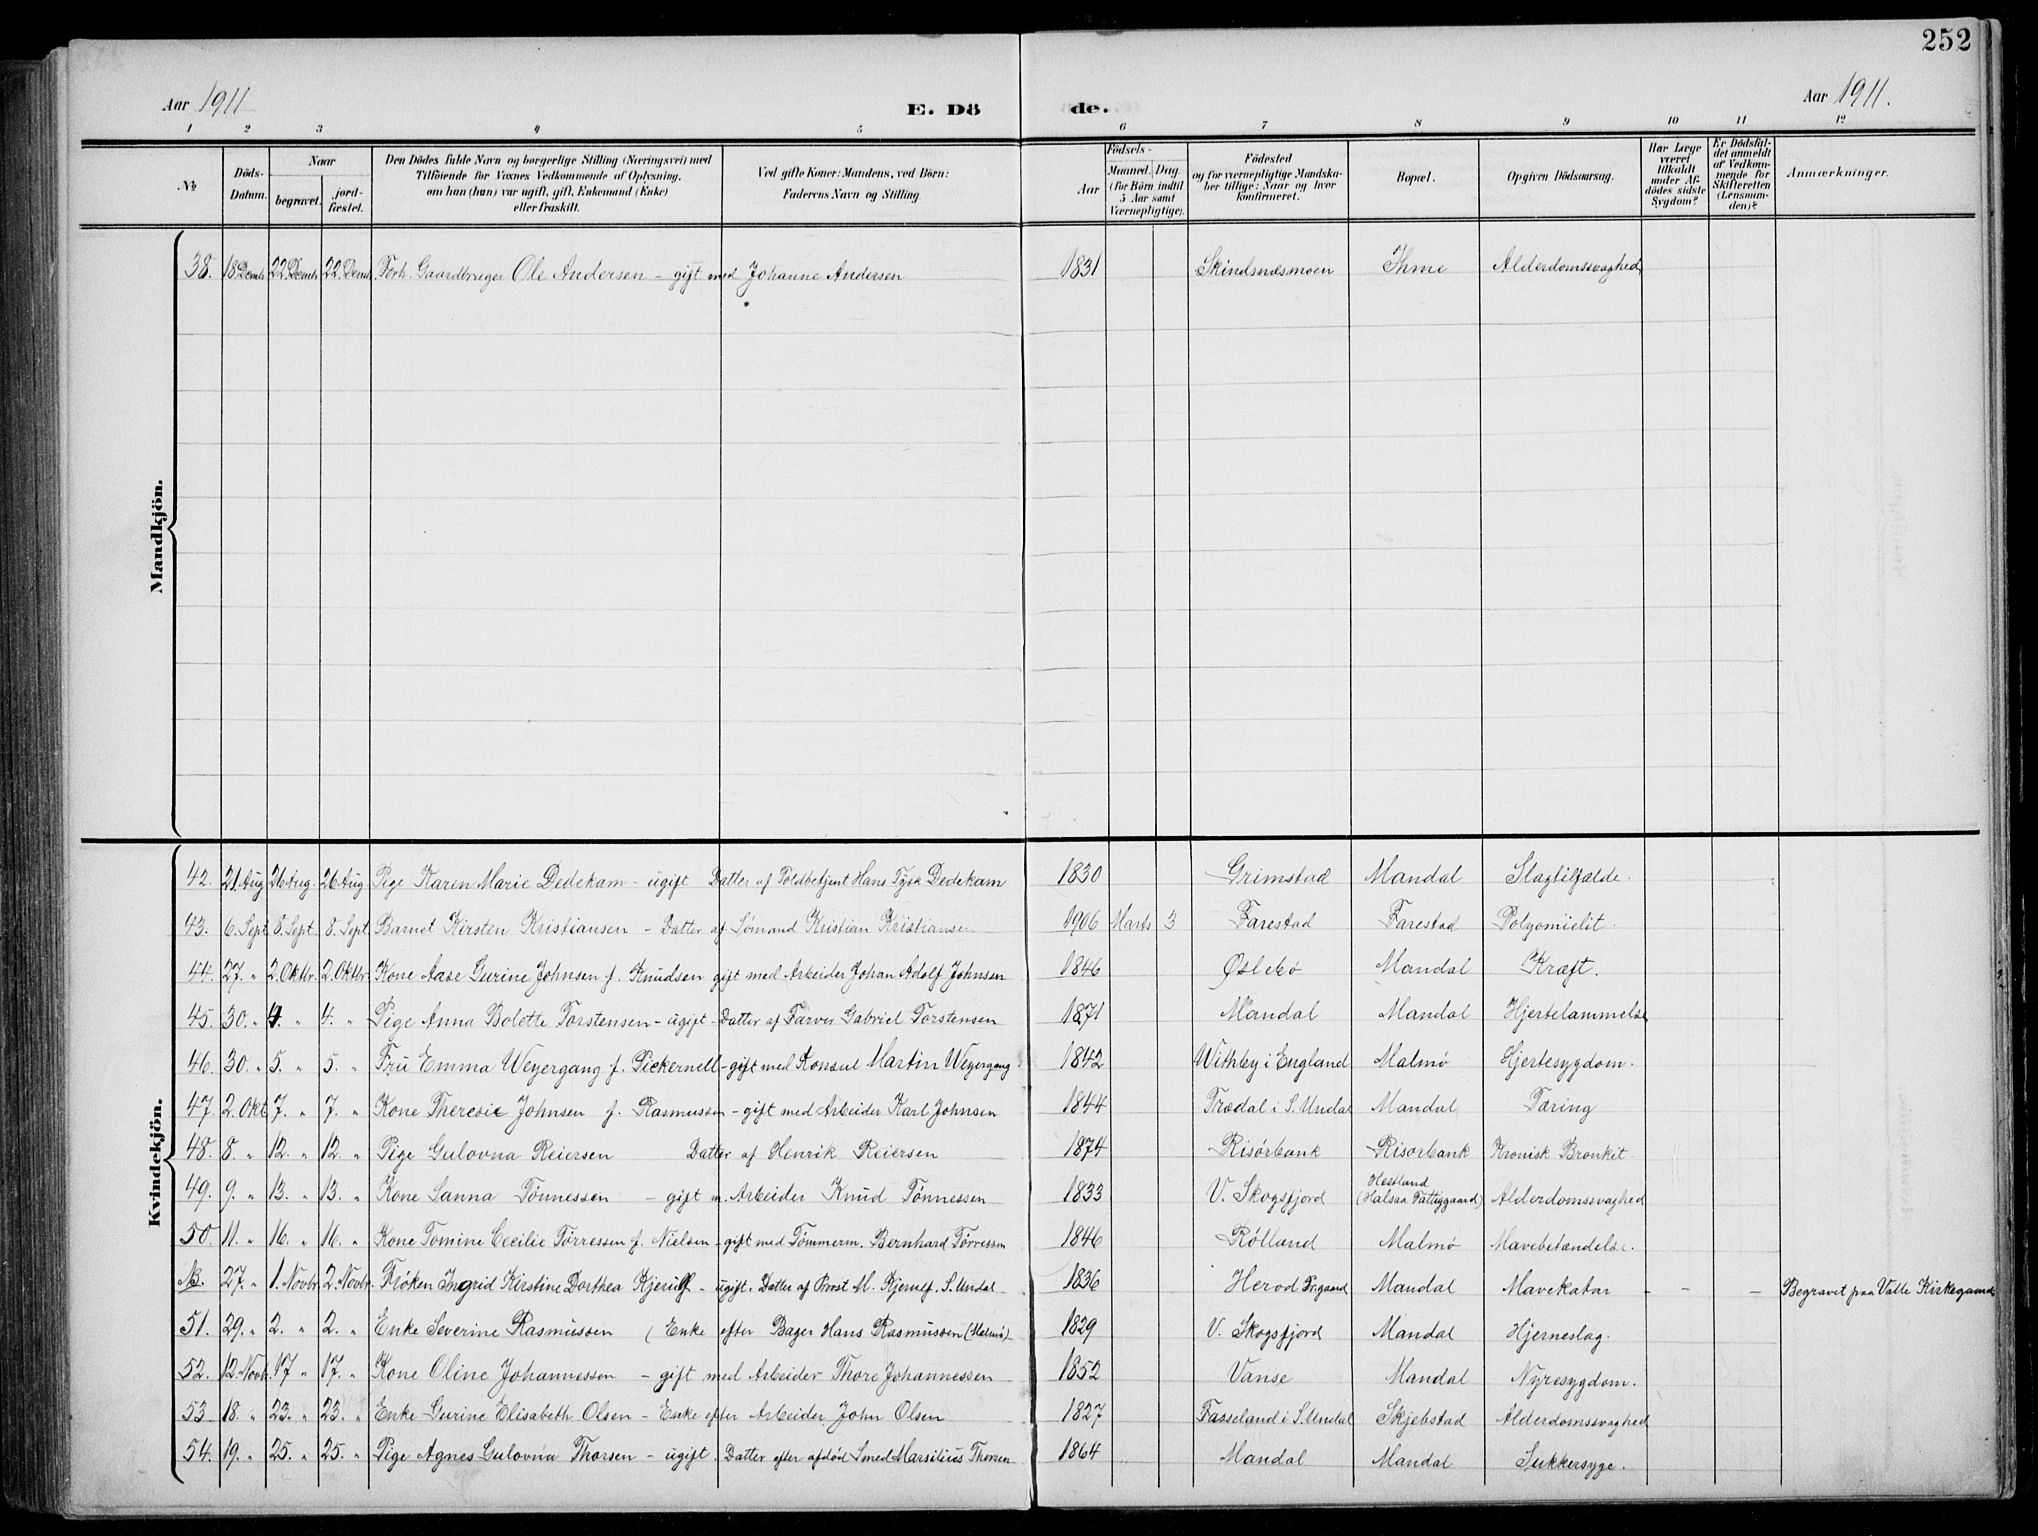 252
Aar 1911
E. Dö
de.
Aar 1911.
1 2 3 4 5 6 7 8 9 10 11 12
№
Döds-
Datum.
Naar
begravet.
jord-
fæstet.
Den Dödes fulde Navn og borgerlige Stilling (Næringsvei) med
Tilföiende for Voxnes Vedkommende af Oplysning,
om han (hun) var ugift, gift, Enkemand (Enke)
eller fraskilt.
Ved gifte Koner: Mandens, ved Börn:
Faderens Navn og Stilling.
Födsels-
Aar
Maaned. Dag.
(for Börn indtil
5 Aar samt
Værnepligtige).
Födested
og for værnepligtige Mandska-
ber tillige: Naar og hvor
konfirmeret.
Bopæl.
Opgiven Dödsaarsag.
Har Læge
været
tilkaldt
under Af-
dödes sidste
Sygdom?
Er Dödsfal-
det anmeldt
af Vedkom-
mende for
Skifteretten
(Lensman-
den)?
Anmærkninger.
Mandkjön.
38. 18. Decmb 22. Decmb 22. Decmb. Forh. Gaardbruger Ole Andersen - gift med Johanne Andersen 1831 Skindsnæsmoen Ihme Alderdomssvaghed
Kvindekjön.
42. 21 Aug 26 Aug. 26 Aug. Pige Karen Marie Dedekam - ugift Datter af Toldbetjent Hans Tysk Dedekam 1830 Grimstad Mandal Slagtilfælde.
43. 6. Sept 8. Sept. 8. Sept. Barnet Kirsten Kristiansen - Datter af Sømand Kristian Kristiansen 1906 Marts 3 Farestad Farestad Polyomielit.
44. 27. " 2. Oktbr. 2. Oktbr. Kone Aase Gurine Johnsen f. Knudsen gift med Arbeider Johan Adolf Johnsen 1846 Øslebø Mandal Kræft.
45. 30. " 4. " 4. " Pige Anna Bolette Torstensen - ugift - Datter af Farver Gabriel Torstensen 1871 Mandal Mandal Hjertelammelse
46. 30. " 5. " 5. " Fru Emma Weyergang f. Pickernell - gift med Konsul Martin Weyergang 1842 Withby i England Malmø Hjertesygdom.
47 2. Okt 7. " 7. " Kone Theresie Johnsen f. Rasmussen - gift med Arbeider Karl Johnsen 1844 Trædal i S. Undal Mandal Tæring
48. 8. " 12. " 12. " Pige Gulovna Reiersen Datter af Henrik Reiersen 1874 Risørbank Risørbank Kronisk Bronkit.
49. 9. " 13. " 13. " Kone Sanna Tönnessen - gift m. Arbeider Knud Tönnessen 1833 V. Skogsfjord Hestland
(Halsaa Fattiggaard) Alderdomssvaghed
50. 11. " 16. " 16. " Kone Tomine Cecilie Tørressen f. Nielsen - gift med Tömmerm. Bernhard Tørressen 1846 Rölland Malmø Mavebetændelse.
NB. 27. " 1. Novbr. 2. Novbr. Frøken Ingrid Kirstine Dorthea Kjerulf - ugift. Datter af Provst M. Kjerulf. S. Undal 1836 Herod Prgaard Mandal Mavekatar - - - Begravet paa Valle Kirkegaard
51. 29. " 2. " 2. " Enke Severine Rasmussen (Enke efter Bager Hans Rasmussen (Malmø) 1829 V. Skogsfjord Mandal Hjerneslag.
52. 12. Novb. 17 " 17. " Kone Oline Johannessen - gift med Arbeider Thore Johannessen 1852 Vanse Mandal Nyresygdom.
53 18. " 23. " 23. " Enke Gurine Elisabeth Olsen - Enke efter Arbeider John Olsen 1827 Fasseland i S. Undal Skjebstad Alderdomssvaghed
54. 19. " 25. " 25. " Pige Agnes Gulovna Thorsen - ugift. Datter efter afdød Smed Marsilius Thorsen 1864 Mandal Mandal Sukkersyge.